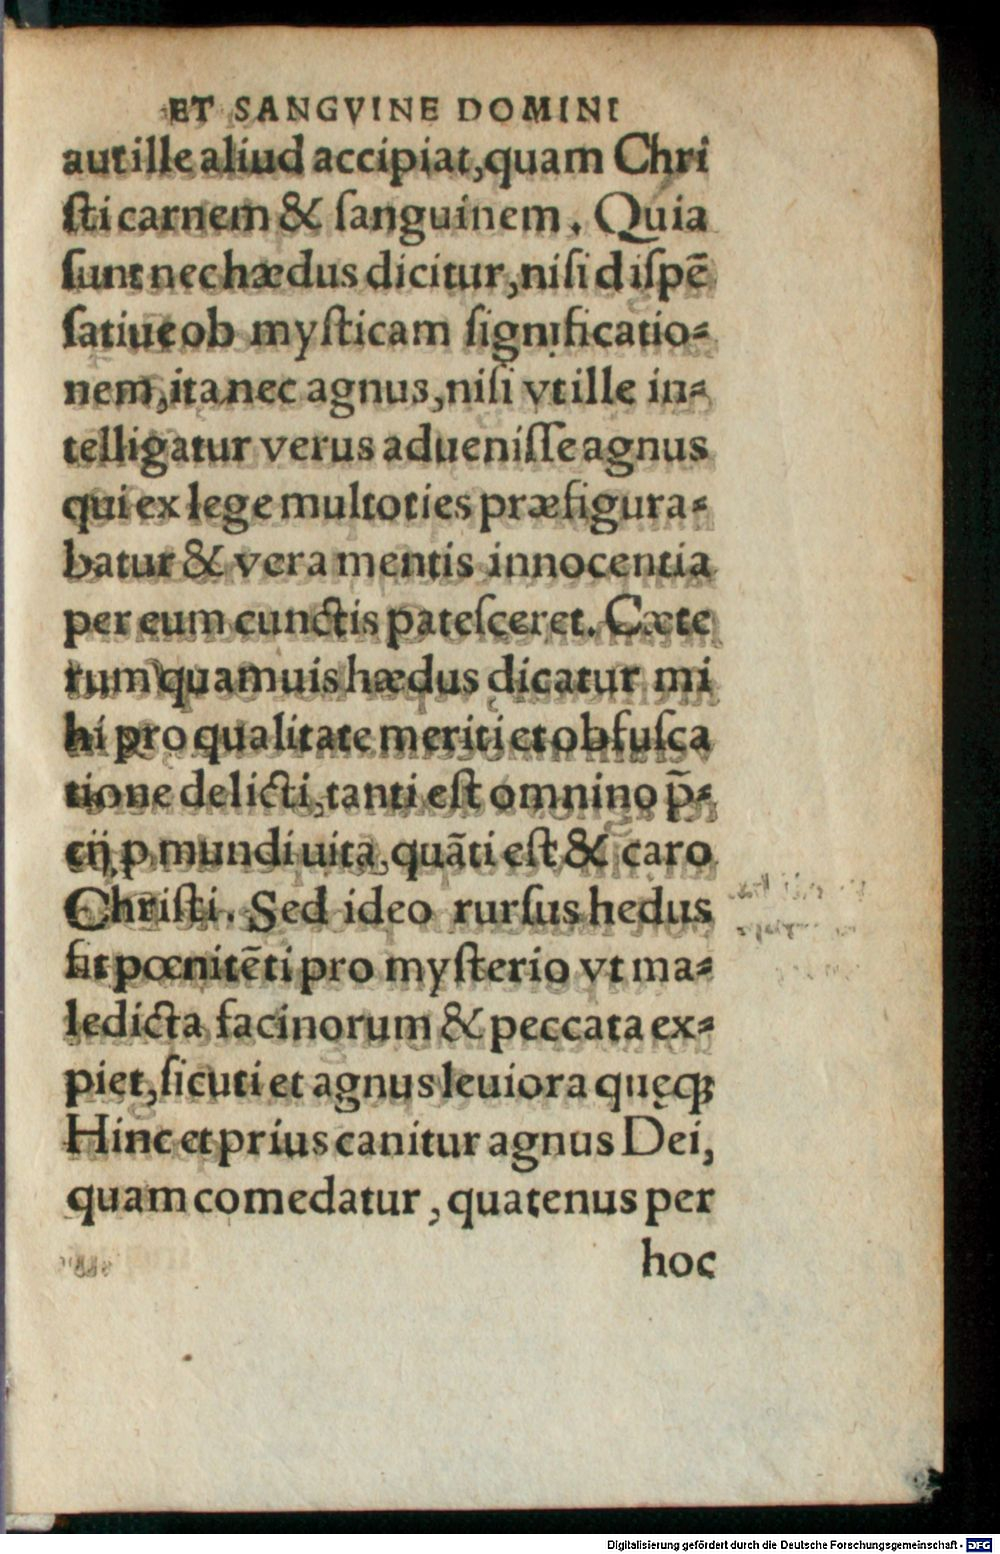 ET SANGVINE DOMINI
aut ille aliud accipiat, quam Chri
ſti carnem & ſanguinem. Quia
ſunt nec hædus dicitur, niſi diſpē
ſatiue ob myſticam ſignificatio-
nem, ita nec agnus, niſi vt ille in-
telligatur verus adueniſſe agnus
qui ex lege multoties præfigura-
batur & vera mentis innocentia
per eum cunctis pateſceret. Cæte
rum quamuis hædus dicatur mi
hi pro qualitate meriti et obfuſca
tione delicti, tanti est omnino p̄-
cij ꝓ mundi uita, quāti eſt & caro
Chriſti. Sed ideo rurſus hedus
fit pœnitēti pro myſterio vt ma-
ledicta facinorum & peccata ex-
piet, ſicuti et agnus leuiora quęqꝫ
Hinc et prius canitur agnus Dei,
quam comedatur, quatenus per
hoc
Digitalisierung gefördert durch die Deutsche Forschungsgemeinschaft - DFG